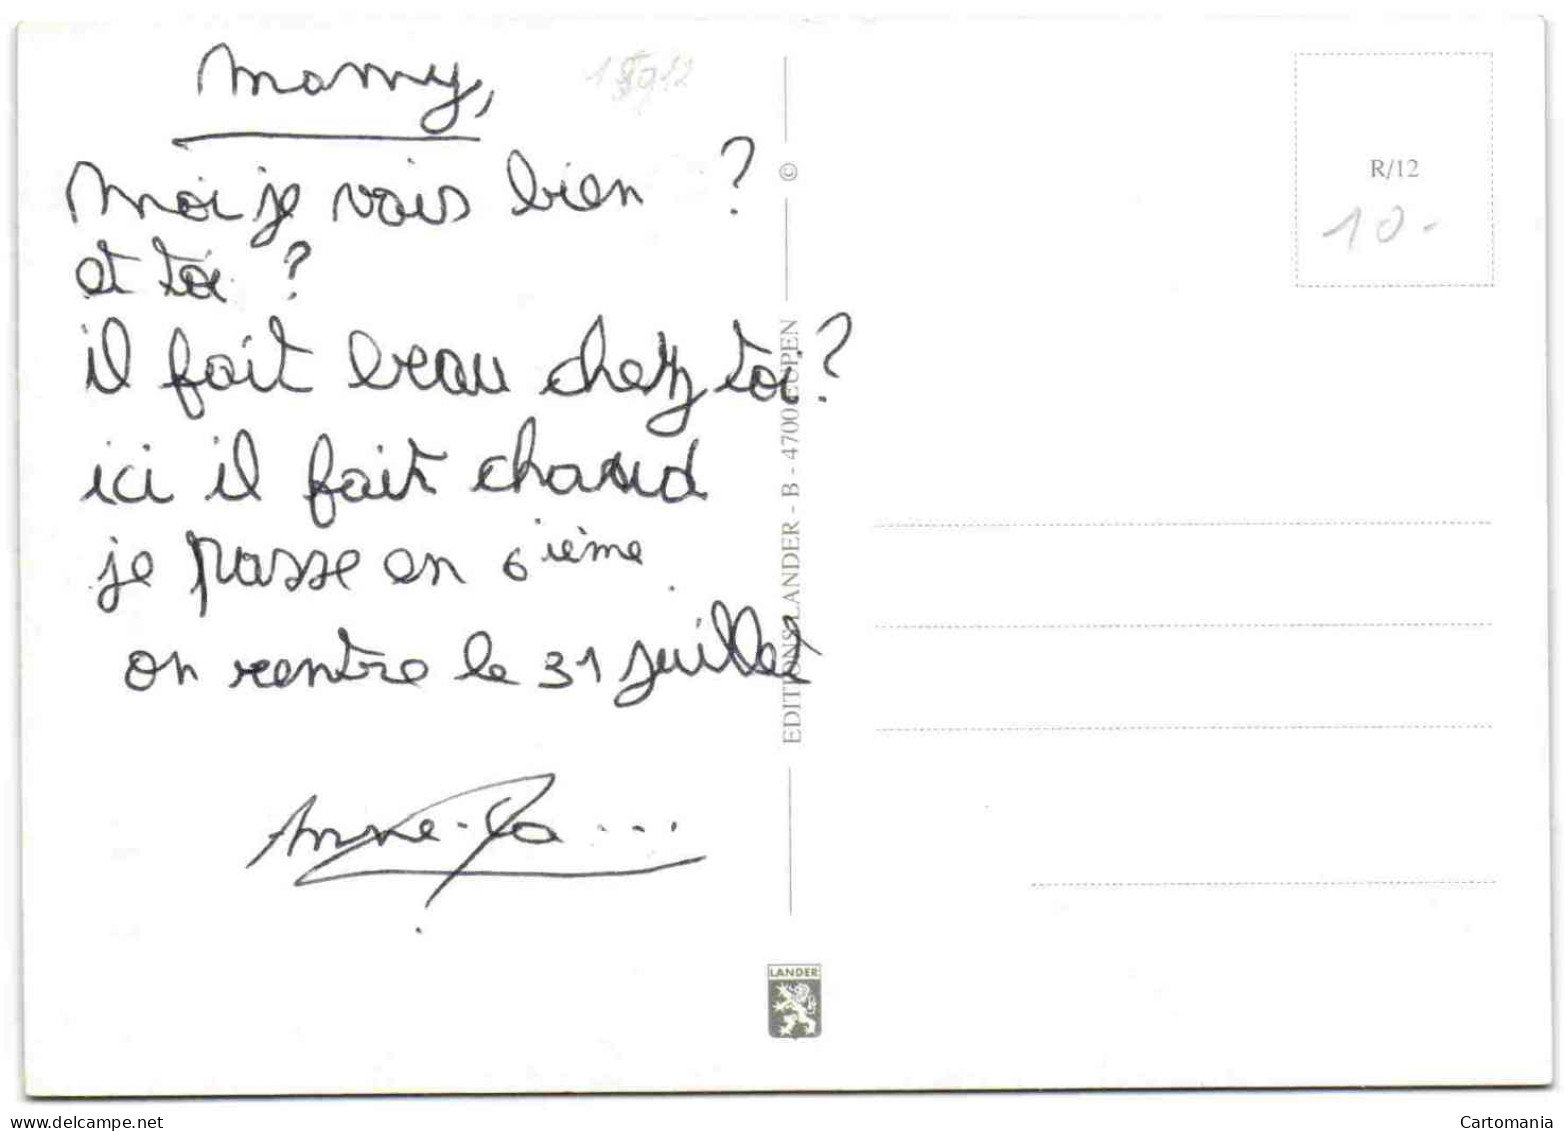 mamy,
moi je vais bien ?
et toi ?
il fait beau chez toi ?
ici il fait chaud
je passe en 6ième.
on rentre le 31 juillet
©
EDITIONS LANDER - B - 4700 EUPEN
LANDER
R/12
10.-
www.delcampe.net
Cartomania